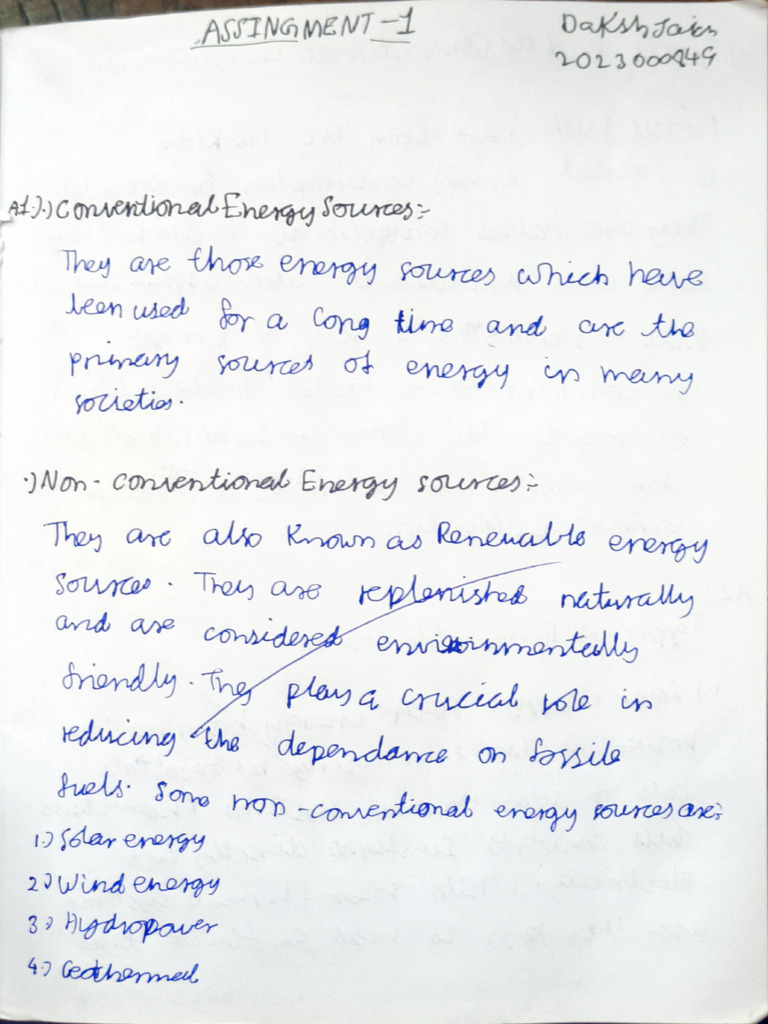 ASSINGMENT-1
Daksh Jain
2023000849
A1.) .) Conventional Energy Sources:-
They are those energy sources which have
been used for a long time and are the
primary sources of energy in many
societies.
.) Non-conventional Energy sources:-
They are also Known as Renewable energy
Sources. They are replenished naturally
and are considered environmentally
friendly. They plays a crucial role in
reducing the dependance on fossile
fuels. Some non-conventional energy sources are:-
1.) Solar energy
2.) Wind energy
3.) Hydropower
4.) Geothermal